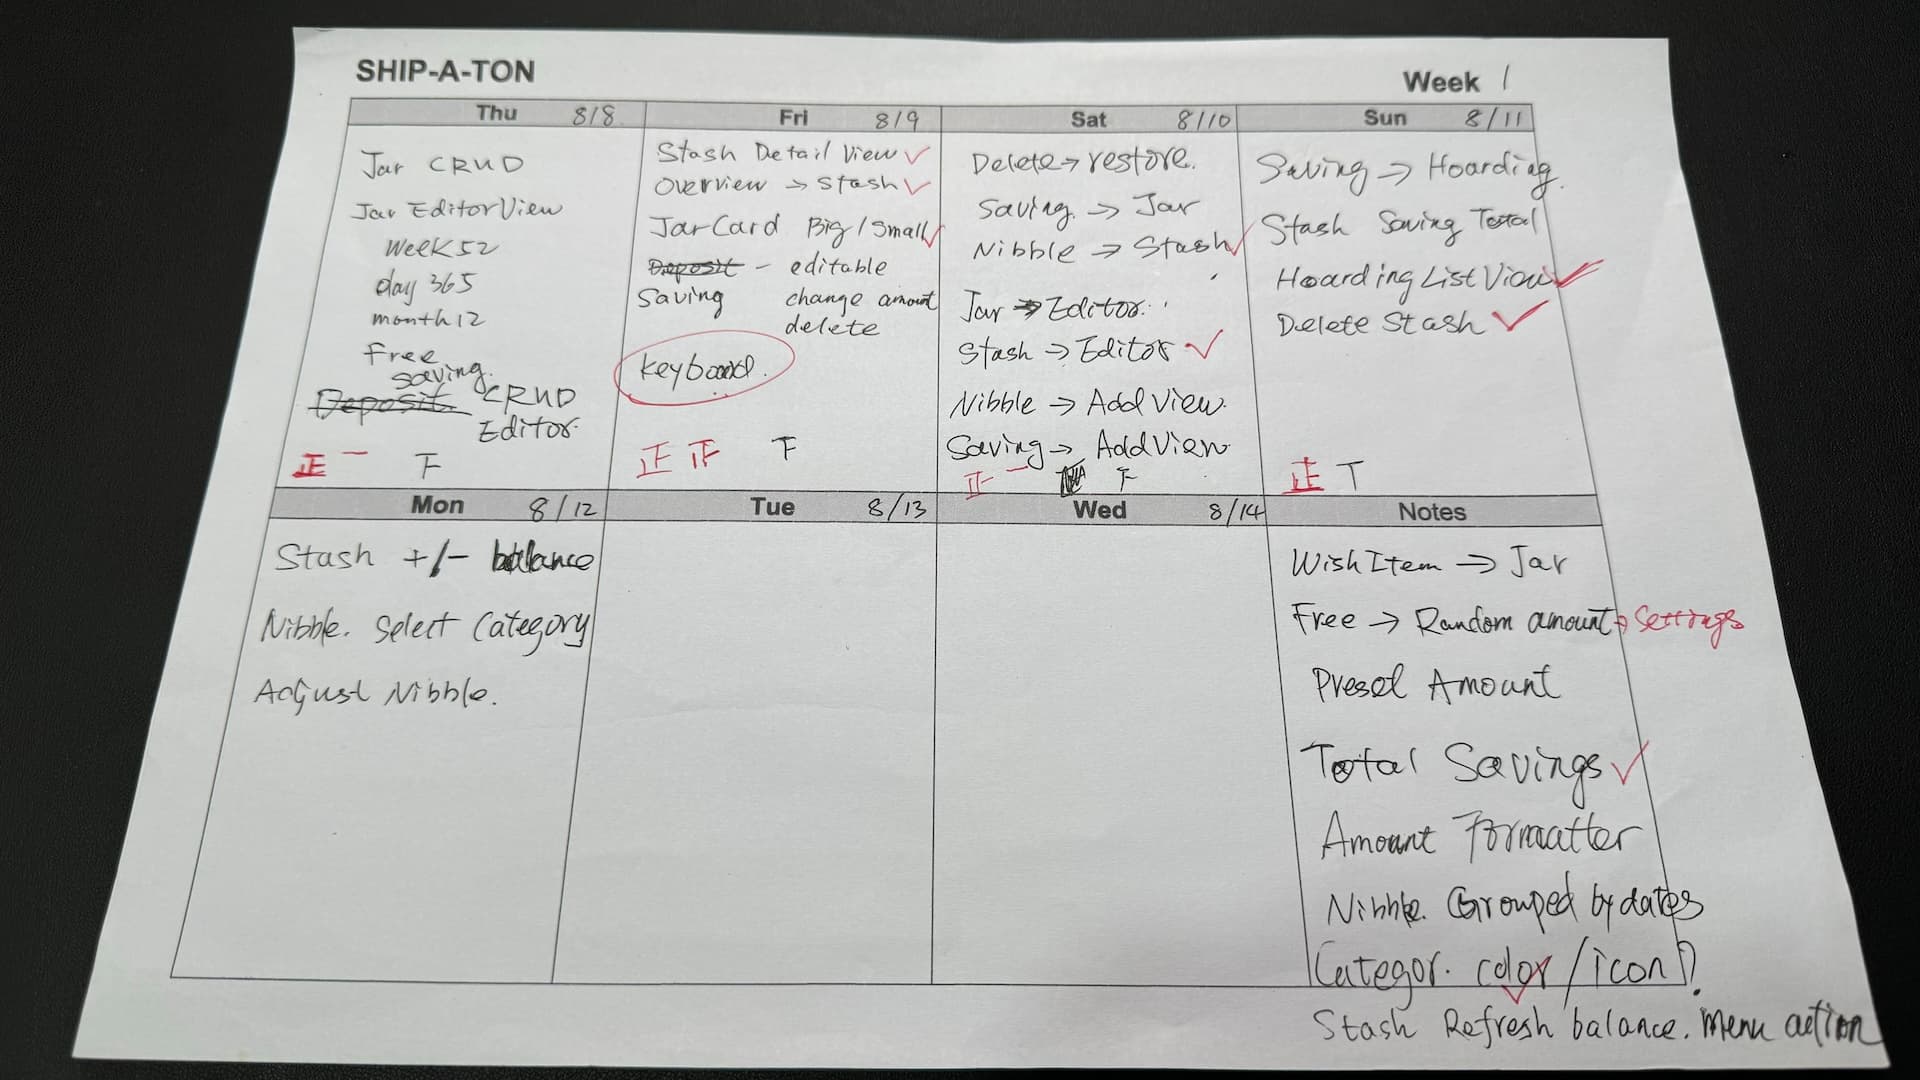 SHIP-A-TON
Week 1
Thu 8/8
Jar CRUD
Jar EditorView
Week 52
day 365
month 12
Free saving.
Deposit. CRUD
Editor.
正 一 下
Fri 8/9
Stash Detail View ✓
Overview → Stash ✓
JarCard Big / Small ✓
Deposit - editable
Saving change amount
delete
keyboard.
正 正 下
Sat 8/10
Delete → restore.
Saving. → Jar
Nibble → Stash ✓
Jar → Editor.
Stash → Editor ✓
Nibble → Add View.
Saving → Add View
正 一 下
Sun 8/11
Saving → Hoarding.
Stash Saving Total
Hoarding List View ✓
Delete Stash ✓
正 T
Mon 8/12
Stash +/- balance
Nibble. Select Category
Adjust Nibble.
Tue 8/13
Wed 8/14
Notes
WishItem → Jar
Free → Random amount → Settings
Preset Amount
Total Savings ✓
Amount Formatter
Nibble. Grouped by dates
Categor. color / icon ✓
Stash Refresh balance. Menu action